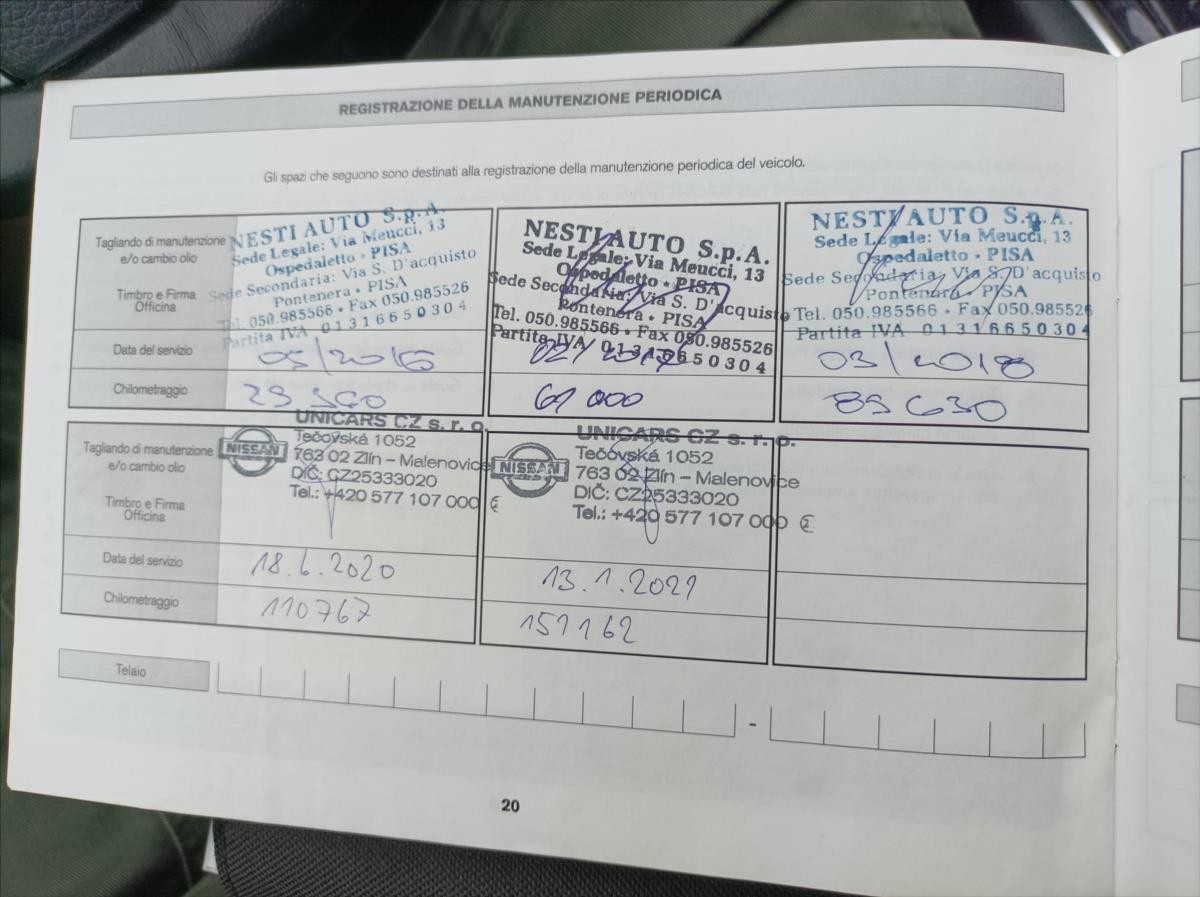 REGISTRAZIONE DELLA MANUTENZIONE PERIODICA
Gli spazi che seguono sono destinati alla registrazione della manutenzione periodica del veicolo.
Tagliando di manutenzione
e/o cambio olio
Timbro e Firma
Officina
NESTI AUTO S.p.A.
Sede Legale: Via Meucci, 13
Ospedaletto • PISA
Sede Secondaria: Via S. D'acquisto
Pontenera • PISA
Tel. 050.985566 • Fax 050.985526
Partita IVA 01316650304
NESTI AUTO S.p.A.
Sede Legale: Via Meucci, 13
Ospedaletto • PISA
Sede Secondaria: Via S. D'acquisto
Pontenera • PISA
Tel. 050.985566 • Fax 050.985526
Partita IVA 01316650304
NESTI AUTO S.p.A.
Sede Legale: Via Meucci, 13
Ospedaletto • PISA
Sede Secondaria: Via S. D'acquisto
Pontenera • PISA
Tel. 050.985566 • Fax 050.985526
Partita IVA 01316650304
Data del servizio
05/2016
03/2018
Chilometraggio
61 000
85 630
Tagliando di manutenzione
e/o cambio olio
Timbro e Firma
Officina
NISSAN
UNICARS CZ s. r. o.
Tečovská 1052
763 02 Zlín – Malenovice
DIČ: CZ25333020
Tel.: +420 577 107 000
NISSAN
UNICARS CZ s. r. o.
Tečovská 1052
763 02 Zlín – Malenovice
DIČ: CZ25333020
Tel.: +420 577 107 000
Data del servizio
18.6.2020
13.1.2021
Chilometraggio
110767
151162
Telaio
-
20